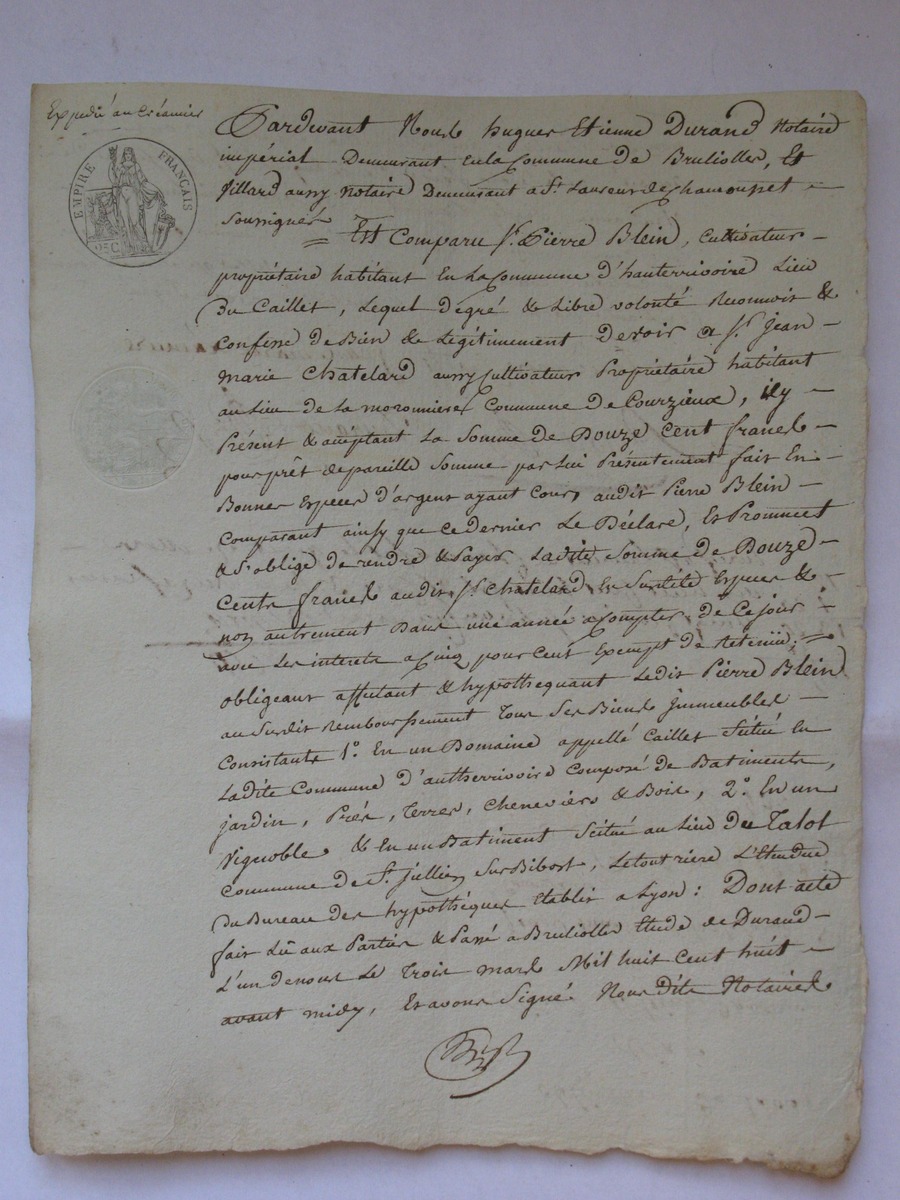 Expedié au créancier
EMPIRE FRANÇAIS
25 C.
Pardevant Nous hugues Etienne Durand Notaire
impérial Demeurant En la Commune de Brulliolles, Et
Villard aussy Notaire Demeurant a St. Laurent de Chamousset —
Soussignés
= Est Comparu Sr. Pierre Blein, Cultivateur —
propriétaire habitant En la Commune d'hauterrivoire Lieu
Du Caillet, Lequel De gré & Libre volonté Reconnoit &
Confesse De Bien & Légitimement Devoir a Sr. Jean —
Marie Chatelard aussy Cultivateur Propriétaire habitant
au Lieu De la moronniere Commune De Courzieux, icy —
Présent & acceptant La Somme De Douze Cent francs —
pour prêt de pareille Somme par Lui Présentement fait En —
Bonnes Especes d'argent ayant Cours audit Pierre Blein —
Comparant ainsy que ce dernier Le Déclare, Et Promet
& S'oblige de rendre & Payer Ladite Somme de Douze —
Cents francs audit Sr. Chatelard En Susdites Especes &
non autrement Dans une année a Compter de Ce jour —
avec Les interets a Cinq pour Cent Exempt de Retenue; =
obligeant affectant & hypothequant Ledit Pierre Blein
au Susdit Remboursement Tous Ses Biens Immeubles —
Consistants 1°. En un Domaine appellé Caillet Scitué En
Ladite Commune D'autherrivoire Composé de Batiments,
jardin, Prés, Terres, Cheneviers & Bois, 2°. En un
Vignoble & En un Batiment Scitué au Lieu du Talot
Commune De St. Jullien Sur Bibost, Le tout rière L'Etendue
Du Bureau des hypothéques Etabli a Lyon: Dont acte
fait Lû aux Parties & Passé a Brulliolles Etude de Durand —
L'un de nous Le Trois mars Mil huit Cent huit —
avant midy, Et avons Signé Nous Dits Notaires